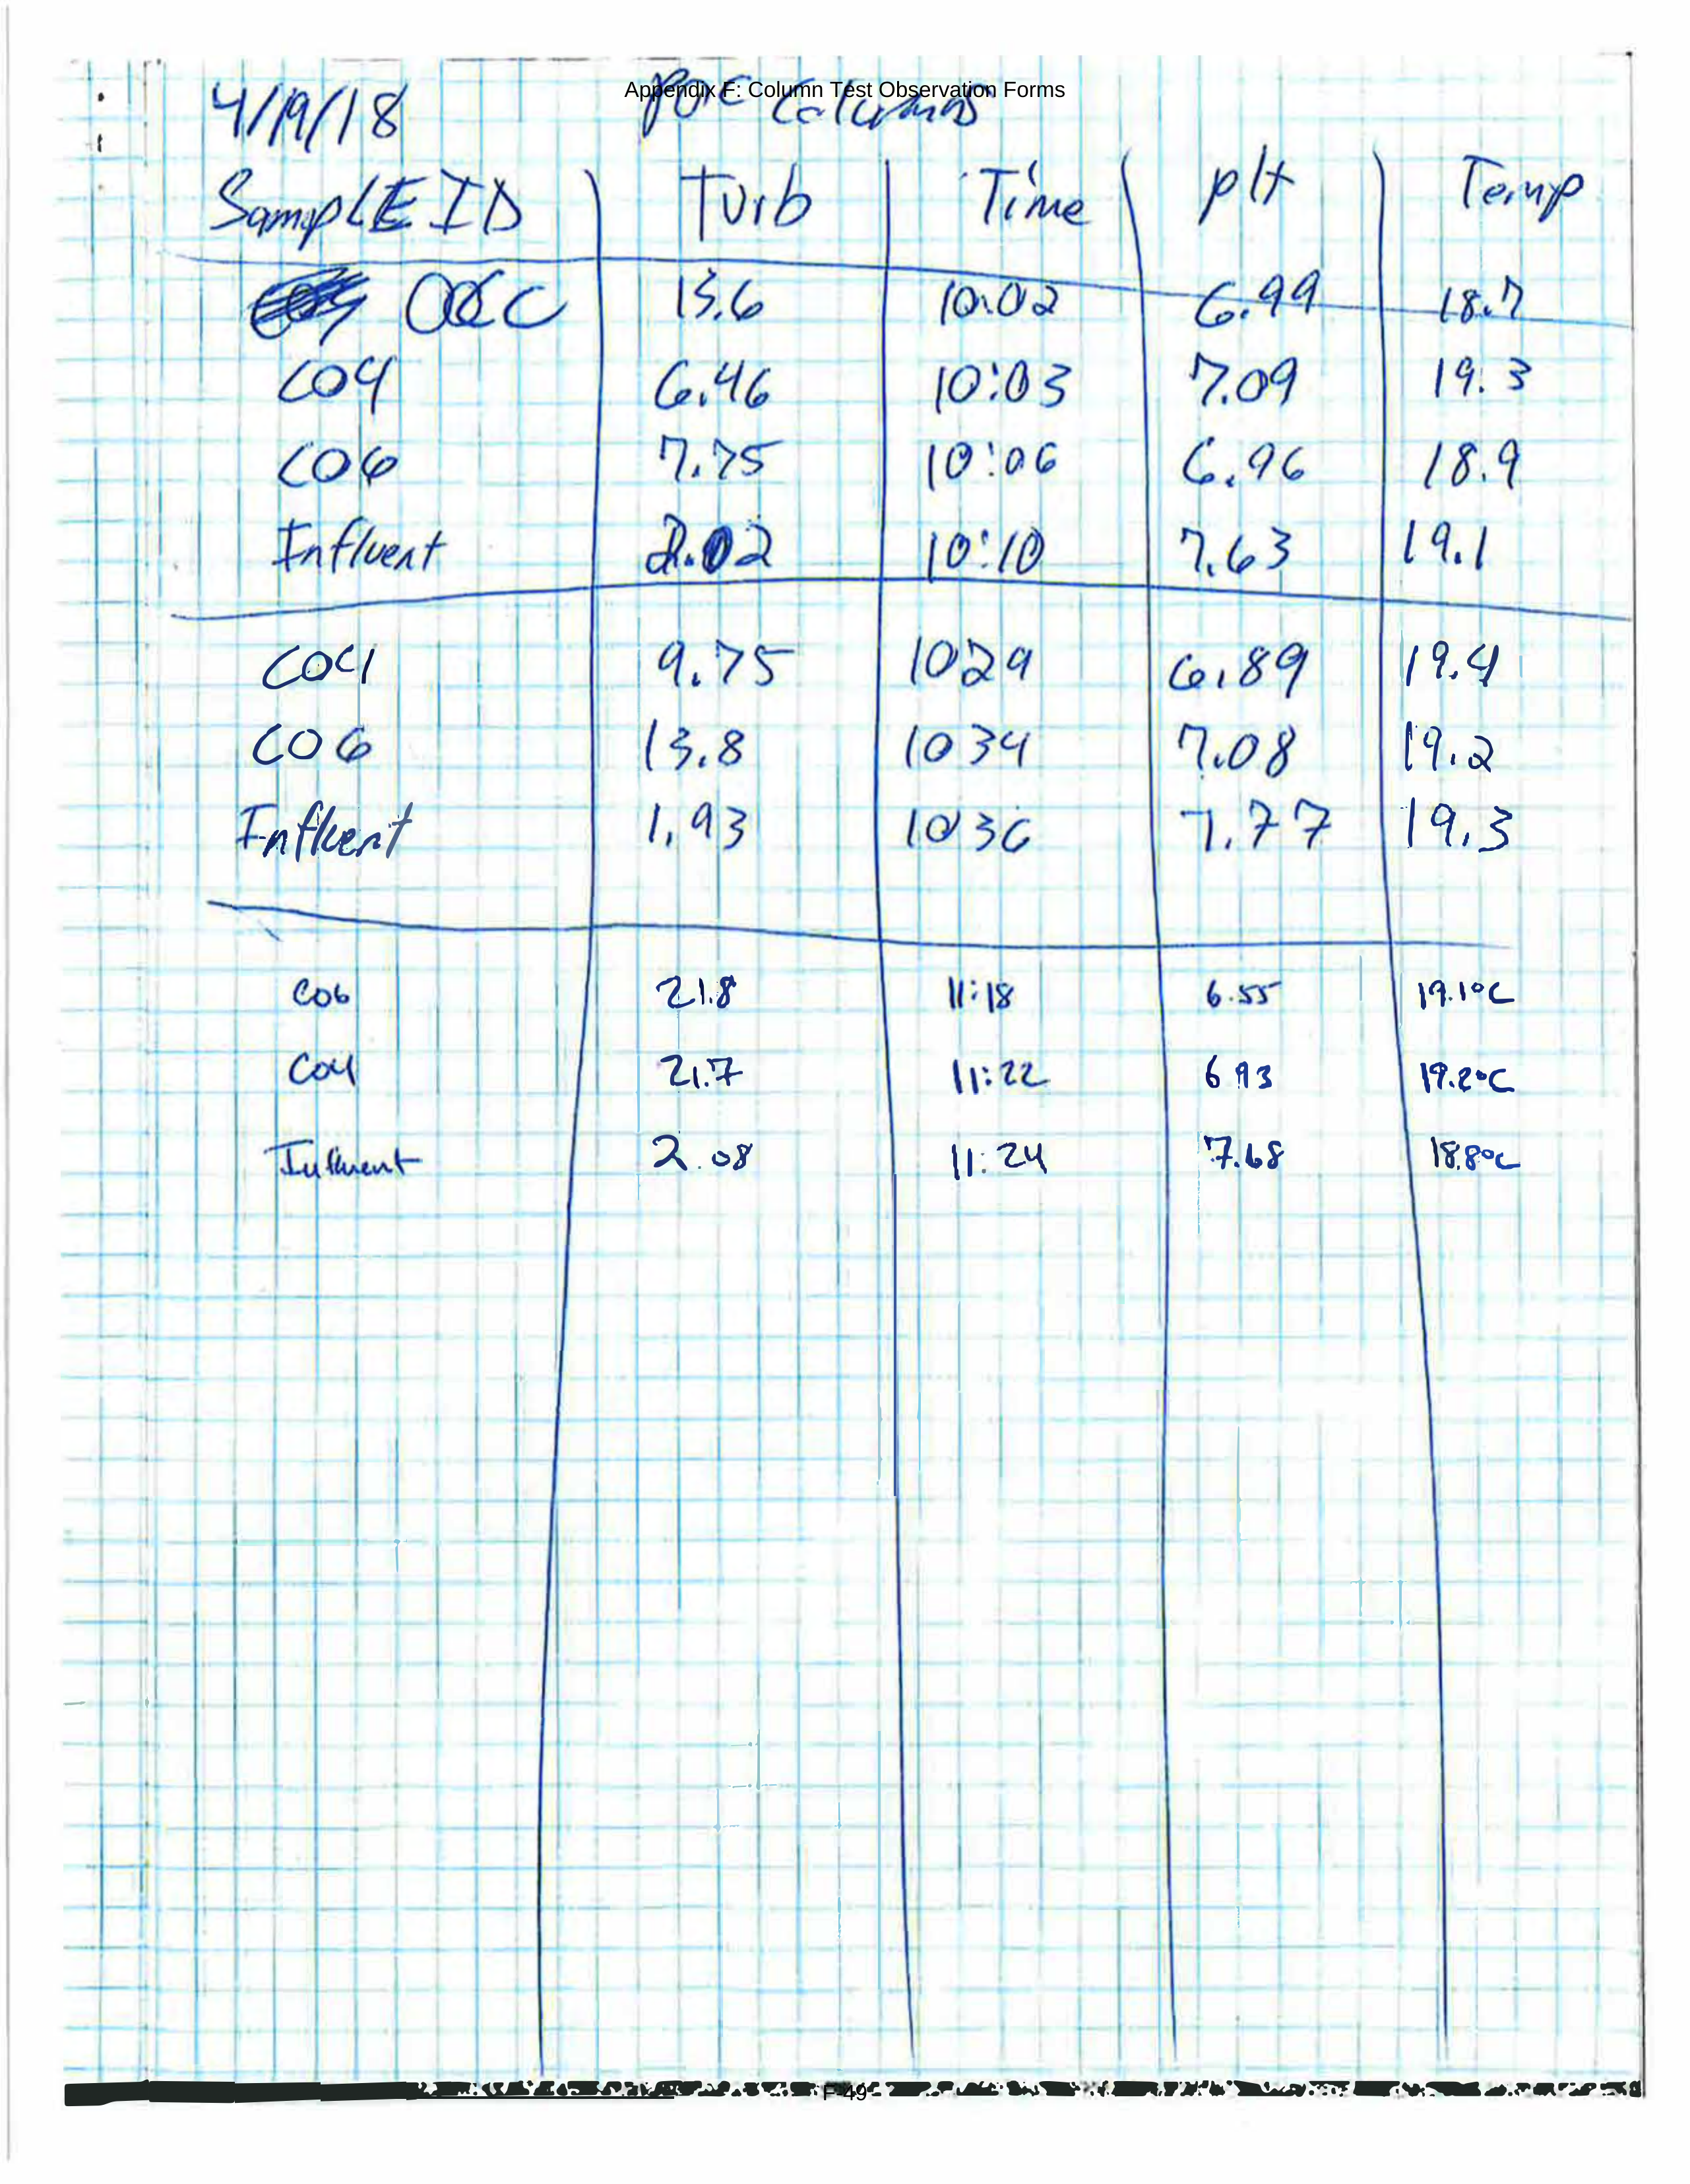 Appendix F: Column Test Observation Forms
4/19/18 POC Columns
SampLE ID Turb Time pH Temp
13.6 10:02 6.99 18.7
C04 6.46 10:03 7.09 19.3
C06 7.75 10:06 6.96 18.9
Influent 2.02 10:10 7.63 19.1
C04 9.75 1029 6.89 19.4
C06 13.8 1034 7.08 19.2
Influent 1.93 1036 7.77 19.3
C06 21.8 11:18 6.55 19.1°C
C04 21.7 11:22 6.93 19.2°C
Influent 2.08 11:24 7.68 18.8°C
F-49